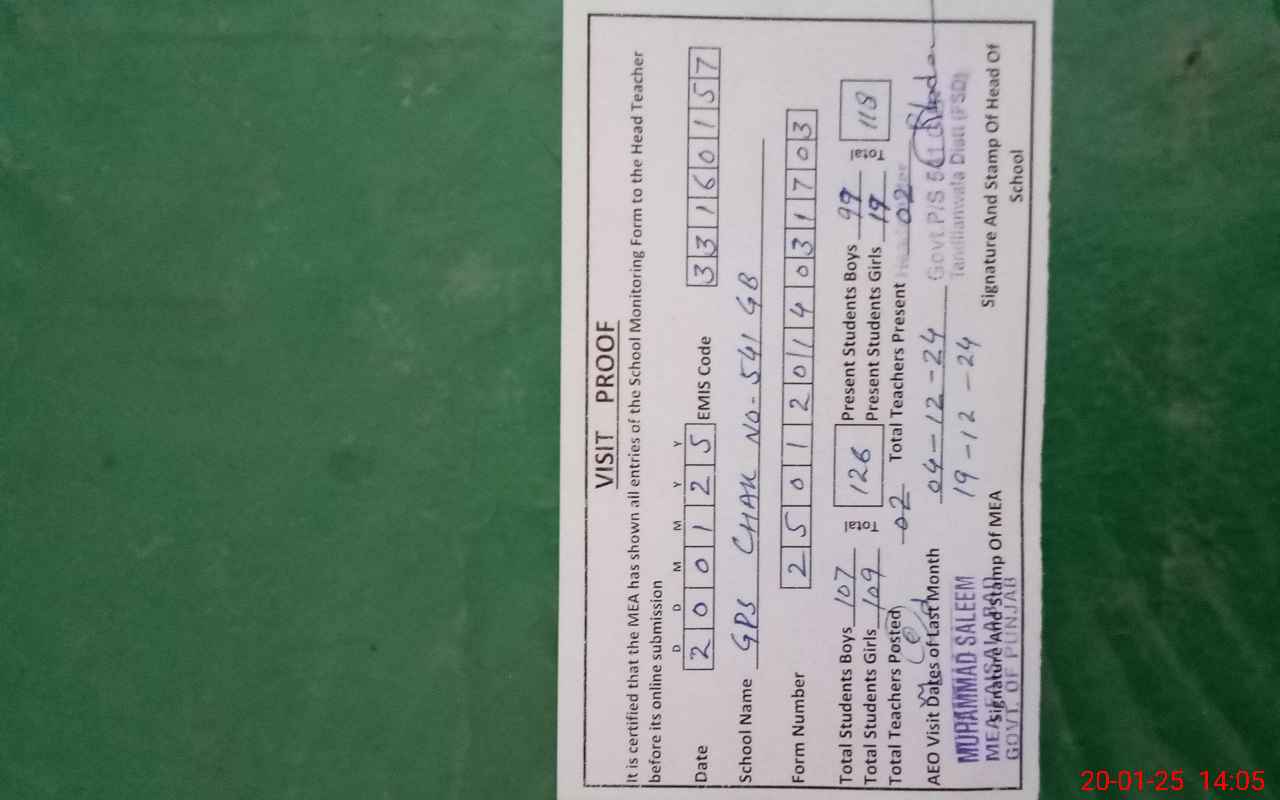 VISIT PROOF
It is certified that the MEA has shown all entries of the School Monitoring Form to the Head Teacher
before its online submission
D D M M Y Y
Date 2 0 0 1 2 5 EMIS Code 3 3 1 6 0 1 5 7
School Name GPS CHAK NO- 541 GB
Form Number 2 5 0 1 2 0 1 4 0 3 1 7 0 3
Total Students Boys 107 Total 126 Present Students Boys 99 Total 118
Total Students Girls 109 Present Students Girls 19
Total Teachers Posted 02 Total Teachers Present 02
AEO Visit Dates of Last Month 04-12-24
19-12-24
Govt P/S 541
Tandlianwala Distt (FSD)
MUHAMMAD SALEEM
MEA FAISALABAD
GOVT. OF PUNJAB
Signature And Stamp Of MEA
Signature And Stamp Of Head Of
School
20-01-25 14:05